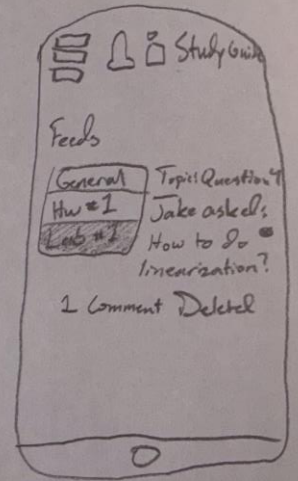 Study Guide
Feeds
General
Hw #1
Lab #1
Topic: Question 4
Jake asked:
How to do
linearization?
1 Comment Deleted